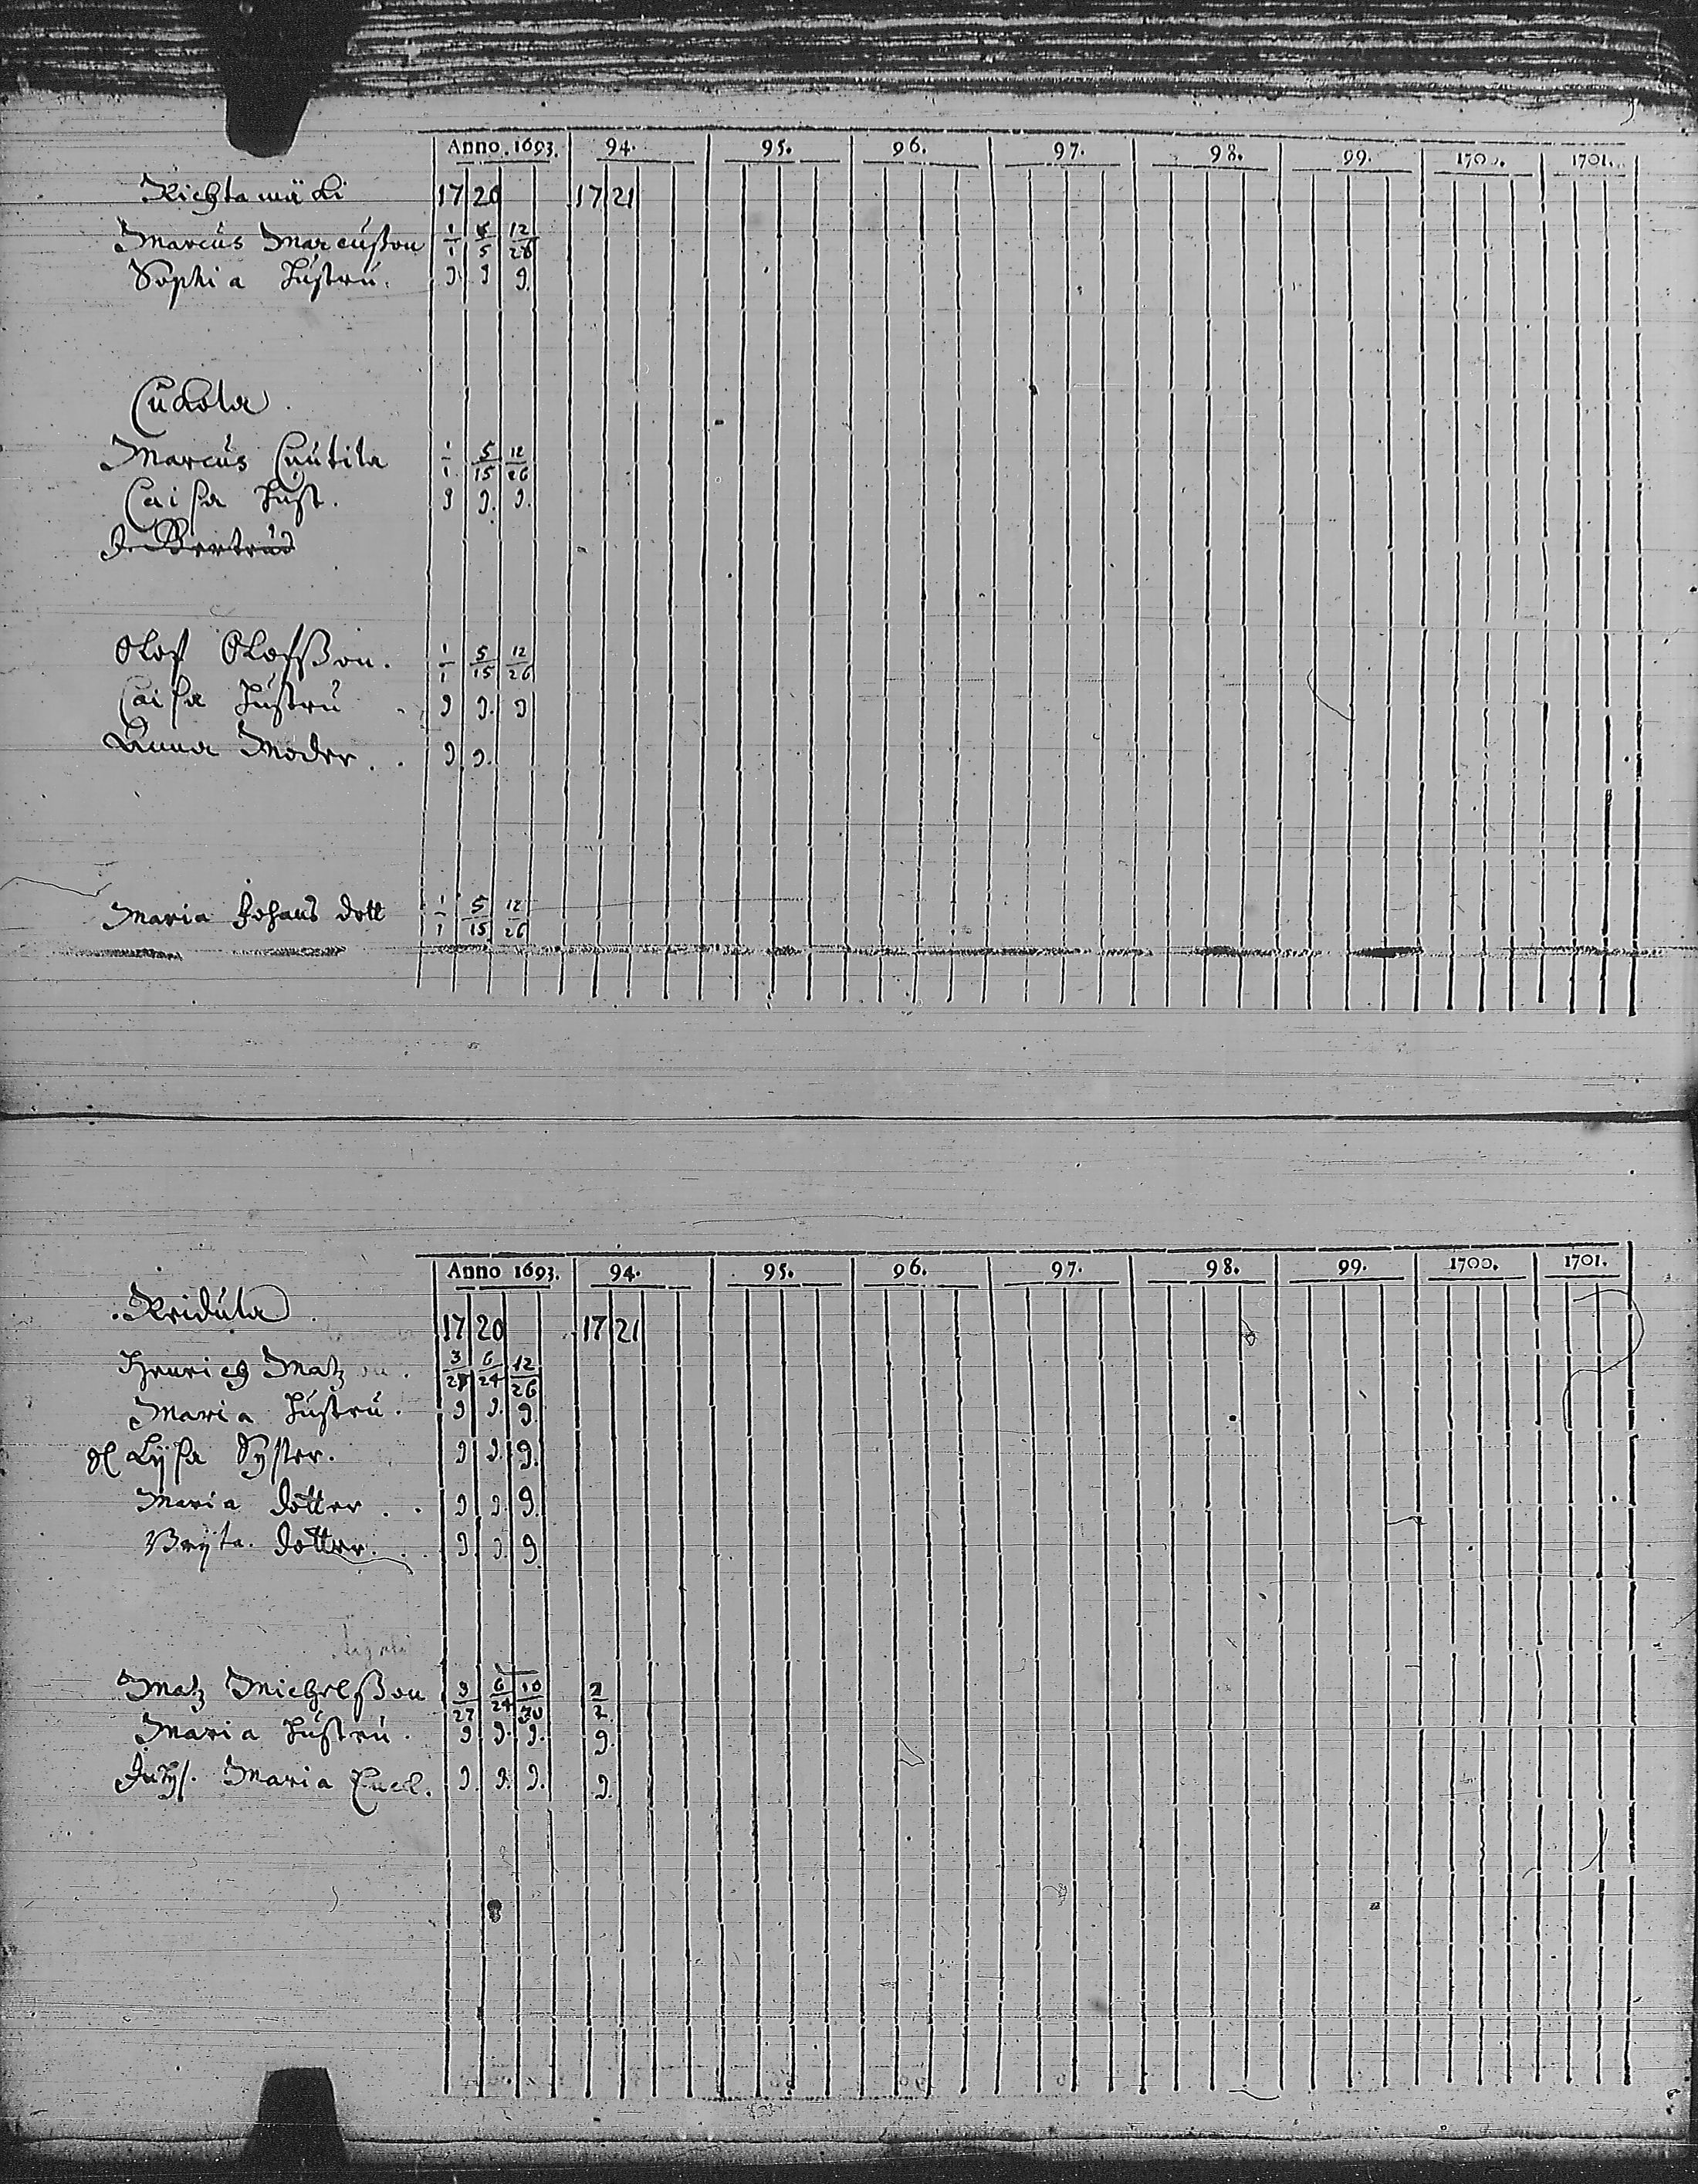 Anno. 1693. 94. 95. 96. 97. 98. 99. 1700. 1701.
Richtamäki 17 20 17 21
Marcus Marcußon 1/1 5/5 12/26
Sophia Hustru. 9. 9 9.
Cuckola.
Marcus Cnutila 1/1 5/15 12/26
Caisa Hust. 9 9. 9.
d. Bertrud
Olof Olofsßon. 1/1 5/15 12/26
Caisa Hustru 9 9. 9
Anna Moder. 9. 9.
Maria Johans dott 1/1 5/15 12/26
Anno 1693. 94. 95. 96. 97. 98. 99. 1700. 1701.
Kridula 17 20 17 21
Henrich Matz 3/27 6/24 12/26
Maria Hustru. 9 9. 9.
Lysa Syster. 9 9. 9.
Maria dotter 9 9. 9.
Bryta. dotter. 9. 9. 9
Matz Michelßon 3/27 6/24 10/30 2/2
Maria Hustru. 9 9. 9. 9.
Maria 9. 9. 9. 9.